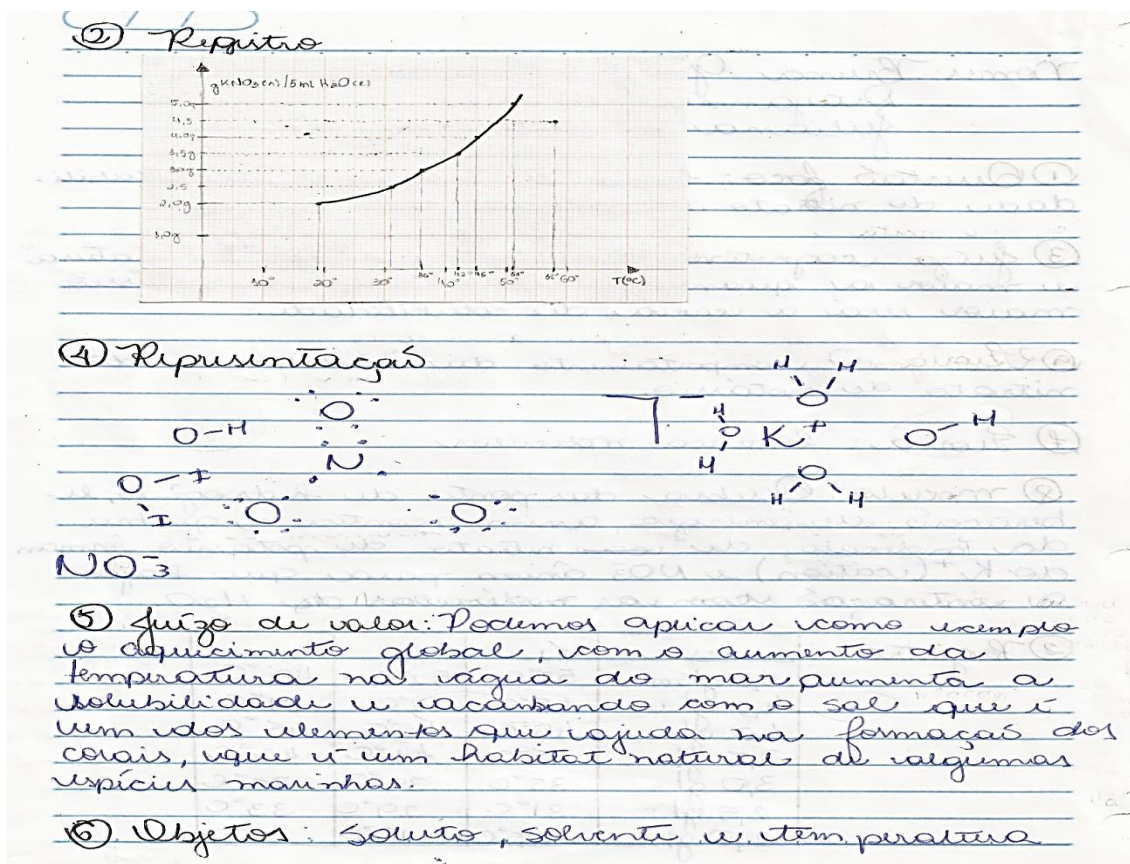 ② Registro
gKNO3(s)/5ml H2O(l)
5,0g
4,5
4,0g
3,5g
3,0g
2,5
2,0g
1,0g
10° 20° 30° 36° 40° 42° 45° 50° 51° 60° T(°C)
④ Representação
H H
O O
O-H H
N O K+ O-H
O-I H O
I O O H H
NO3-
⑤ Juízo de valor: Podemos aplicar como exemplo
o aquecimento global, com o aumento da
temperatura na água do mar aumenta a
solubilidade e acabando com o sal que é
um dos elementos que ajuda na formação dos
corais, que é um habitat natural de algumas
espécies marinhas.
⑥ Objetos: Soluto, solvente e temperatura